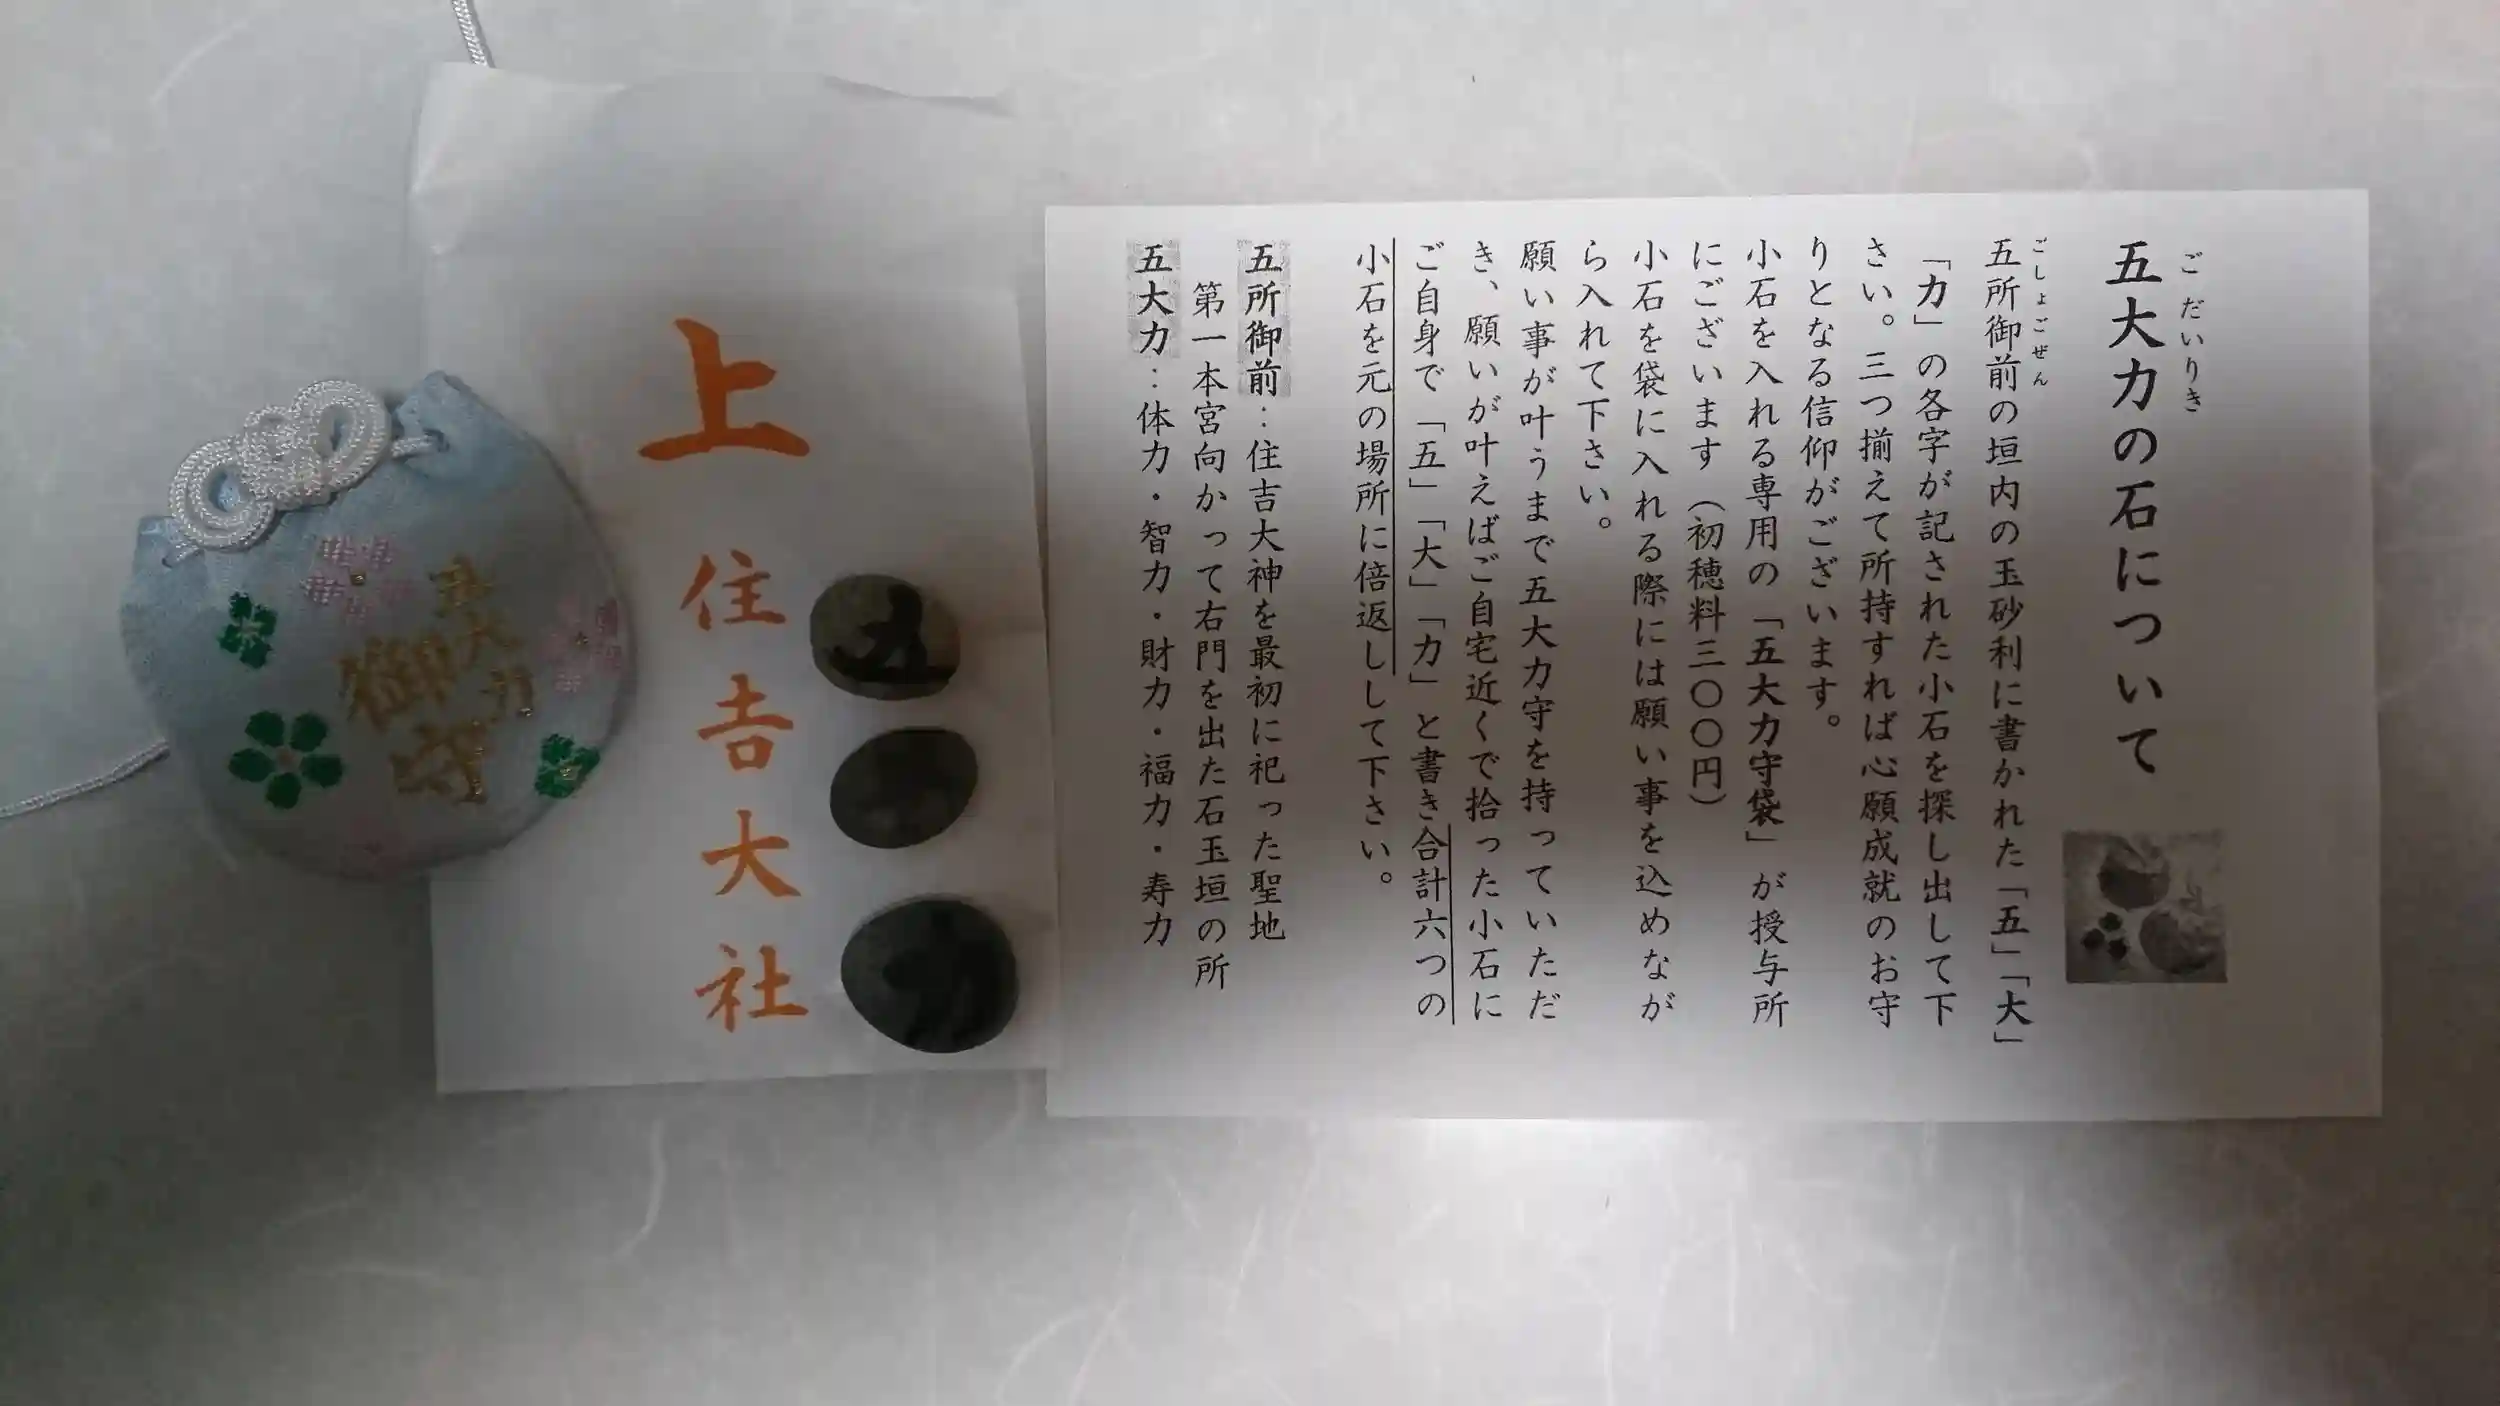 五大力の石について
ごだいりき
五所御前の垣内の玉砂利に書かれた「五」「大」
ごしょごぜん
「力」の各字が記された小石を探し出して下
さい。三つ揃えて所持すれば心願成就のお守
りとなる信仰がございます。
小石を入れる専用の「五大力守袋」が授与所
にございます（初穂料三〇〇円）
小石を袋に入れる際には願い事を込めなが
ら入れて下さい。
願い事が叶うまで五大力守を持っていただ
き、願いが叶えばご自宅近くで拾った小石に
ご自身で「五」「大」「力」と書き合計六つの
小石を元の場所に倍返しして下さい。
五所御前：住吉大神を最初に祀った聖地
第一本宮向かって右門を出た石玉垣の所
五大力：体力・智力・財力・福力・寿力
上
住吉大社
五
五大力
御守